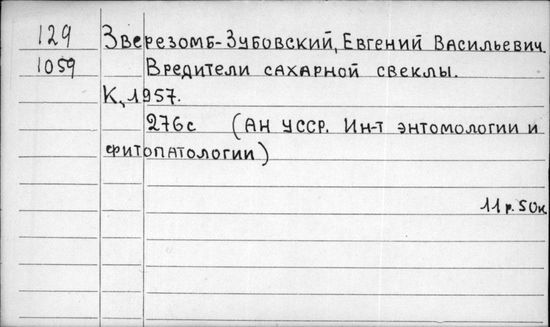 129 Зверезомб-Зубовский, Евгений Васильевич.
1059 Вредители сахарной свеклы.
К., 1957.
276с (АН УССР. Ин-т энтомологии и
фитопатологии)
11р.50к